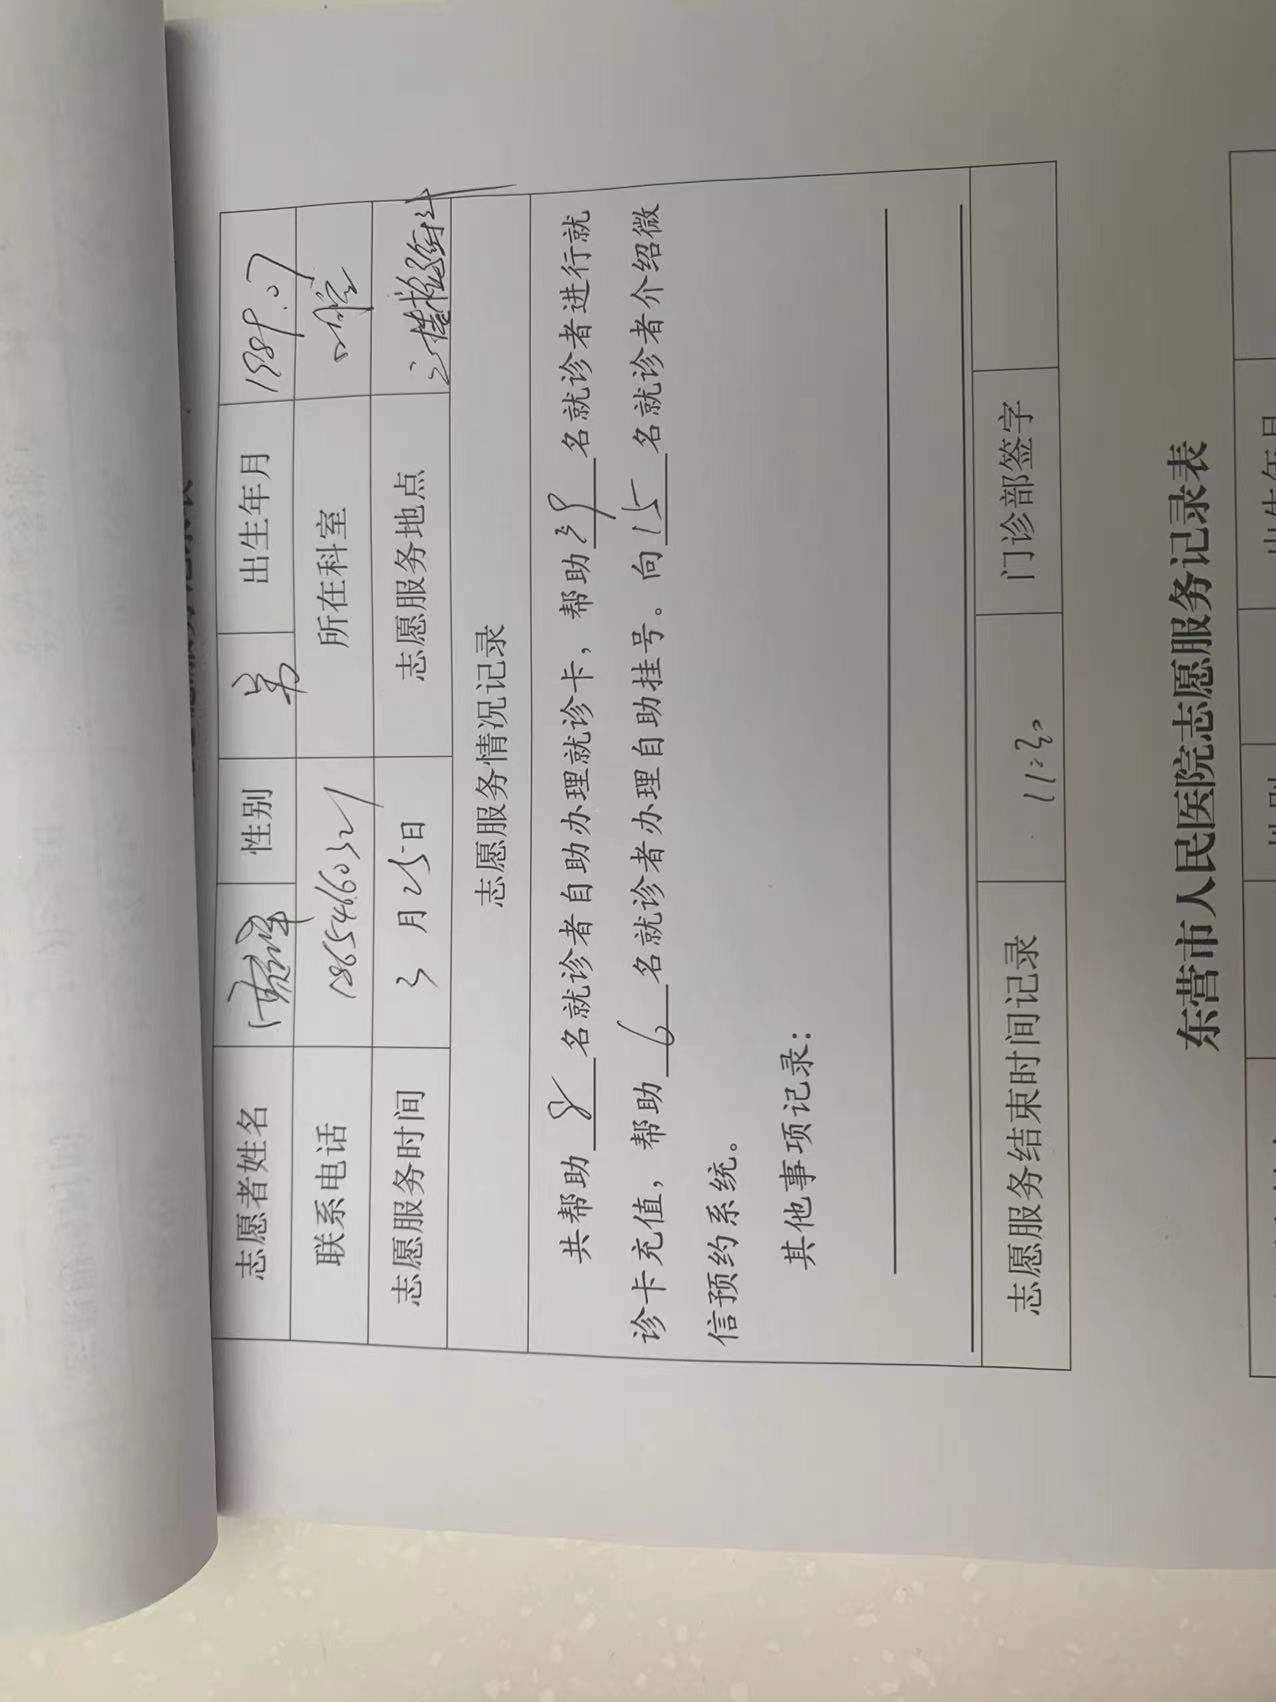 志愿者姓名 性别 男 出生年月 1989.07
联系电话 18654660321 所在科室 口腔
志愿服务时间 3月25日 志愿服务地点
志愿服务情况记录
共帮助8名就诊者自助办理就诊卡，帮助39名就诊者进行就
诊卡充值，帮助6名就诊者办理自助挂号。向15名就诊者介绍微
信预约系统。
其他事项记录：
志愿服务结束时间记录 11:30 门诊部签字
东营市人民医院志愿服务记录表
性别 出生年月